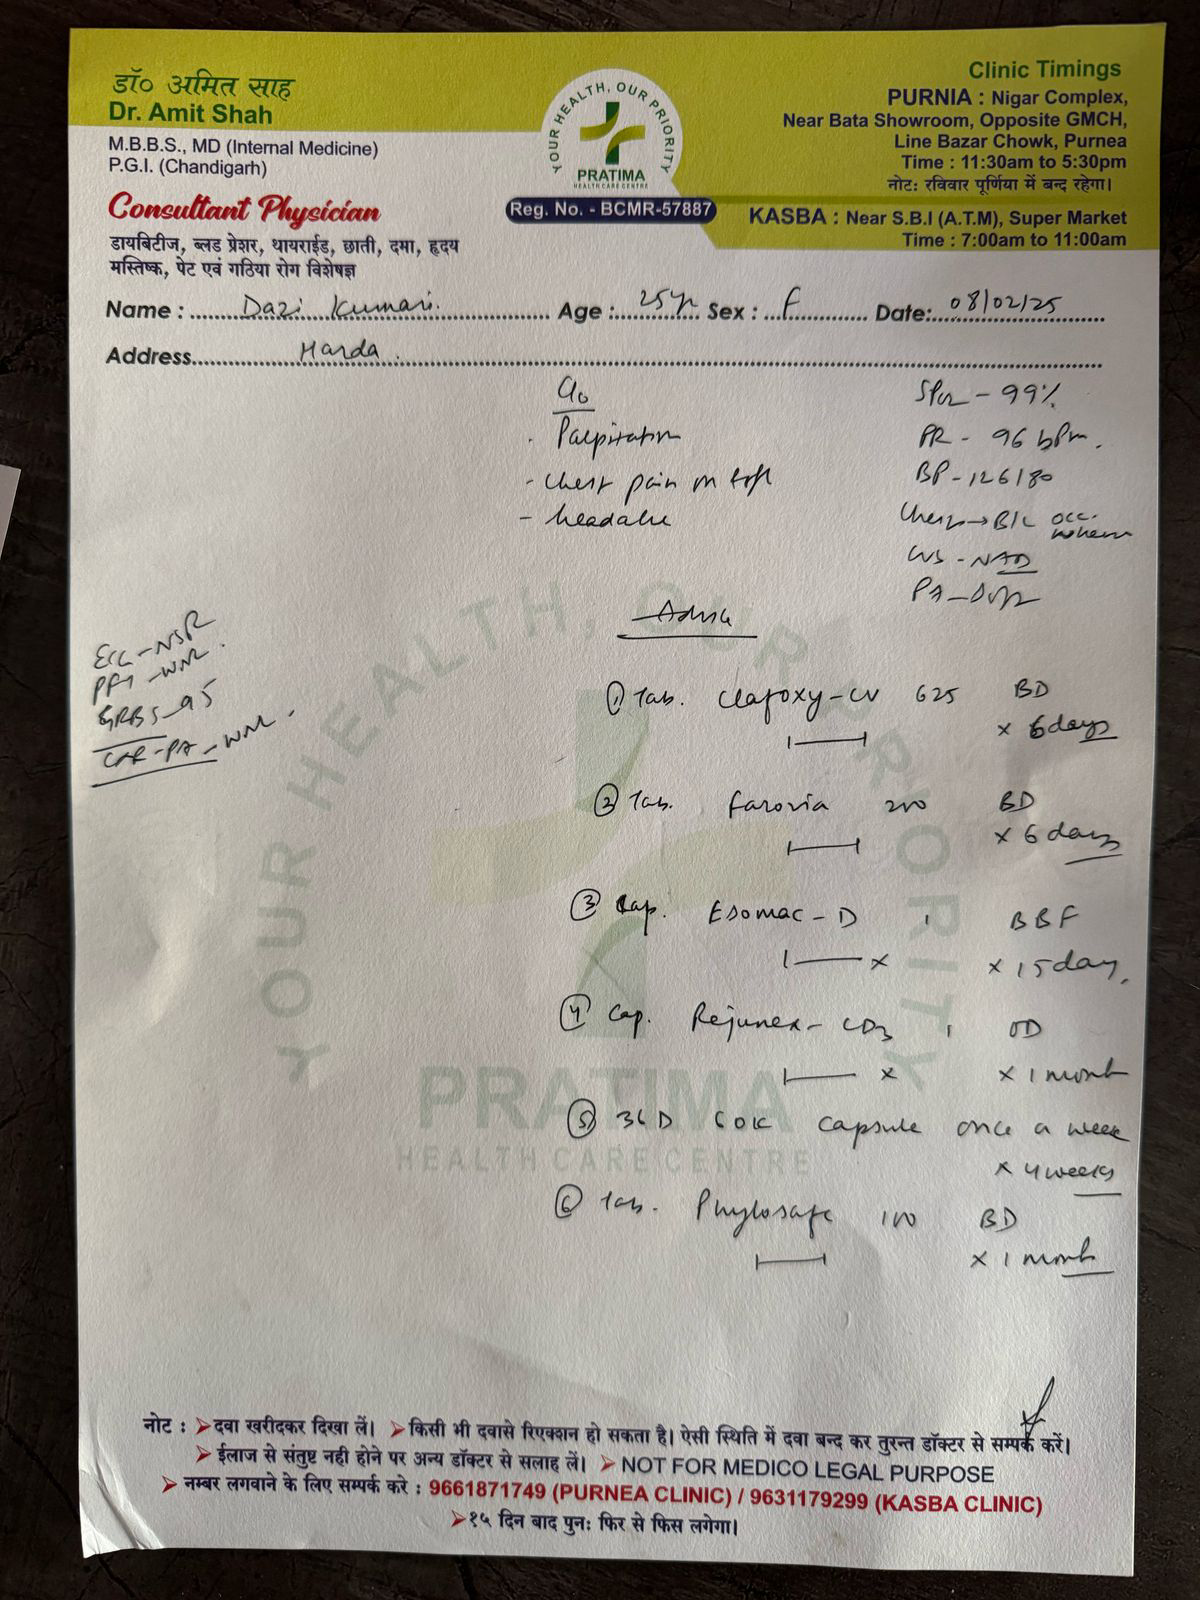 डॉ० अमित साह
Dr. Amit Shah
M.B.B.S., MD (Internal Medicine)
P.G.I. (Chandigarh)
Consultant Physician
डायबिटीज, ब्लड प्रेशर, थायराईड, छाती, दमा, हृदय
मस्तिष्क, पेट एवं गठिया रोग विशेषज्ञ
YOUR HEALTH, OUR PRIORITY
PRATIMA
HEALTH CARE CENTRE
Reg. No. - BCMR-57887
Clinic Timings
PURNIA : Nigar Complex,
Near Bata Showroom, Opposite GMCH,
Line Bazar Chowk, Purnea
Time : 11:30am to 5:30pm
नोट: रविवार पूर्णिया में बन्द रहेगा।
KASBA : Near S.B.I (A.T.M), Super Market
Time : 7:00am to 11:00am
Name : Dazi Kumari. Age : 25yr Sex : F Date: 08/02/25
Address Harda.
C/o
Palpitation
- chest pain on left
- headache
SPO2 - 99%
PR - 96 bpm.
BP - 126/80
Chest → B/L occ. wheeze
CVS - NAD
PA - Soft
ECG - NSR
PFT - WNL.
GRBS - 95
CXR-PA - WNL.
Advice
① Tab. Clafoxy-CV 625 BD
x 6 days
② Tab. Farovia 200 BD
x 6 days
③ Cap. Esomac-D 1 BBF
x 15 day,
④ Cap. Rejunex-CD3 1 OD
x 1 month
⑤ 36D 60K capsule once a week
x 4 weeks
⑥ Tab. Phylosafe 100 BD
x 1 month
YOUR HEALTH, OUR PRIORITY
PRATIMA
HEALTH CARE CENTRE
नोट : ➤दवा खरीदकर दिखा लें। ➤किसी भी दवासे रिएक्शन हो सकता है। ऐसी स्थिति में दवा बन्द कर तुरन्त डॉक्टर से सम्पर्क करें।
➤ईलाज से संतुष्ट नही होने पर अन्य डॉक्टर से सलाह लें। ➤NOT FOR MEDICO LEGAL PURPOSE
➤नम्बर लगवाने के लिए सम्पर्क करे : 9661871749 (PURNEA CLINIC) / 9631179299 (KASBA CLINIC)
➤१५ दिन बाद पुनः फिर से फिस लगेगा।